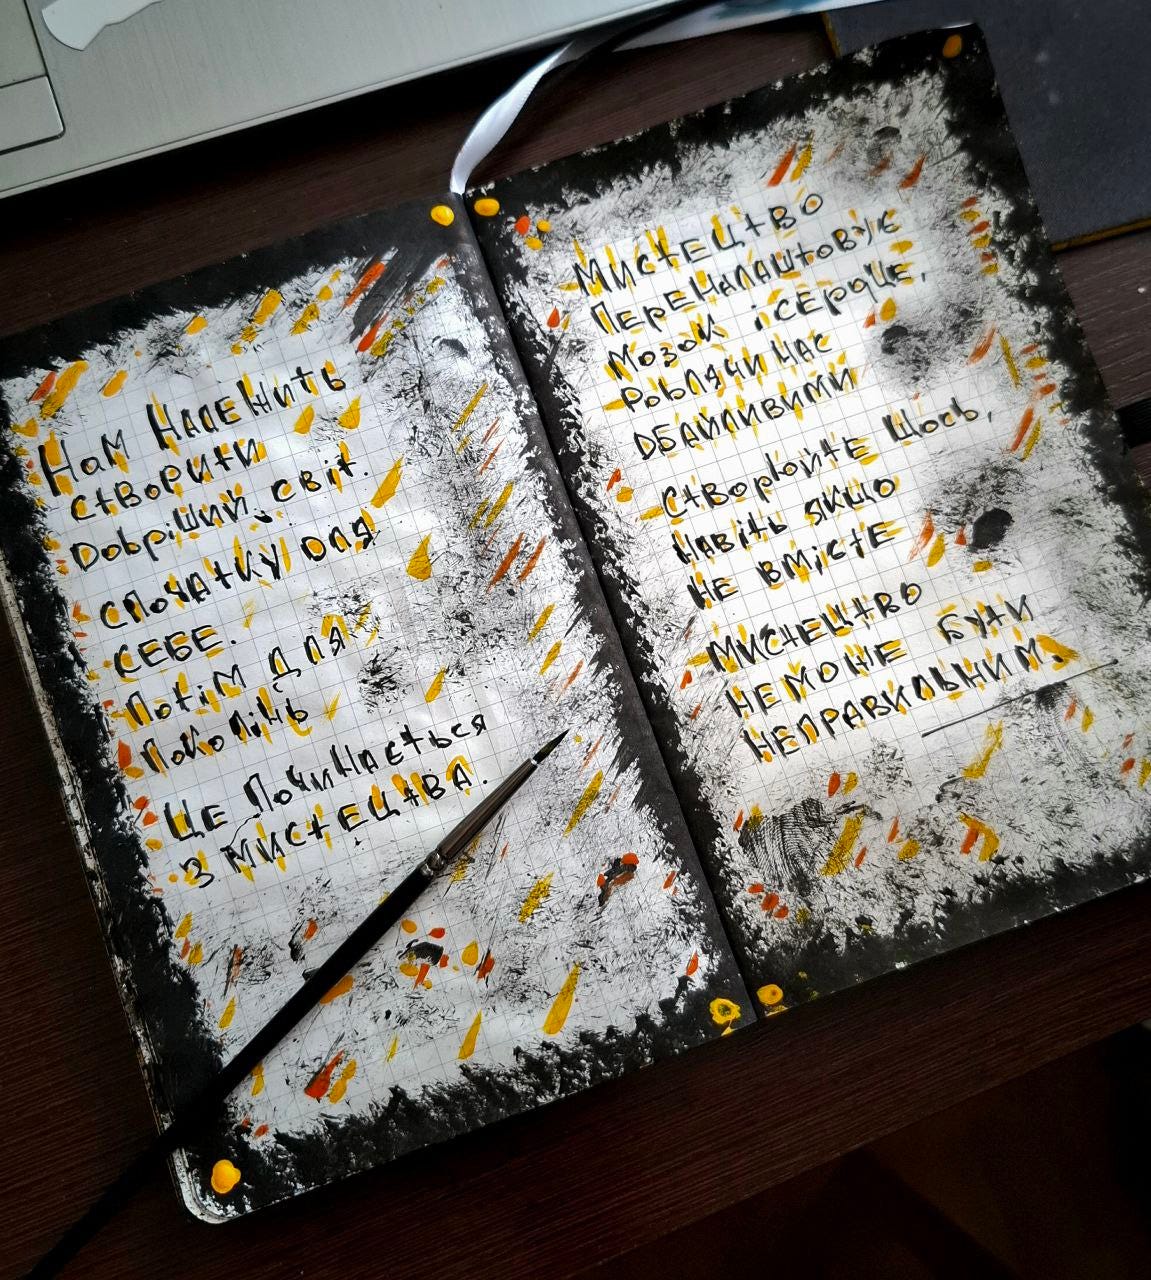 Нам належить
створити
добріший світ.
спочатку для
себе.
Потім для
поколінь
Це починається
з мистецтва.
Мистецтво
переналаштовує
мозок і серце,
роблячи нас
дбайливими
Створюйте щось,
навіть якщо
не вмієте
Мистецтво
не може бути
неправильним.